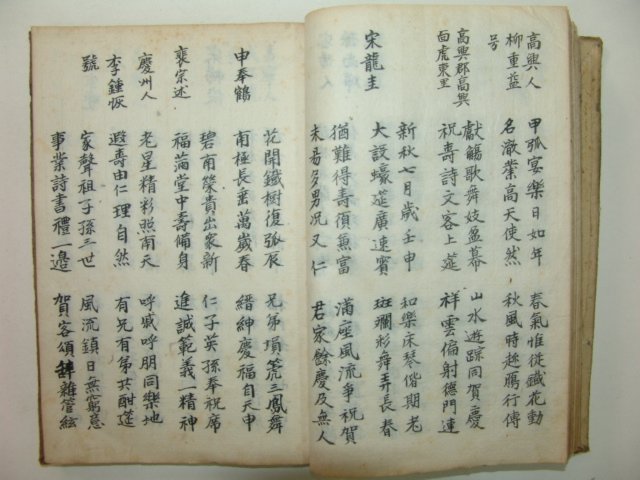 高興人
柳重益
号
高興郡高興
面虎東里
甲弧宴樂日如年 春氣惟從鐵花動
名澈業高天使然 秋風時趂鴈行傳
獻觴歌舞妓盈幕 山水遊踪同賀慶
祝壽詩文客上莚 祥雲偏射德門連
宋龍圭
新秋七月歲壬申 和樂床琴偕期老
大設壕莚廣速賓 斑斕彩舞弄長春
猶難得壽須兼富 滿座風流爭祝賀
未易多男况又仁 君家餘慶及無人
申奉鶴
花開鐵樹復弧辰 兄弟塤箎三鳳舞
南極長垂萬歲春 縉紳慶福自天申
裵宗述
碧甫榮貴出家新 仁子英孫奉祝席
福滿堂中壽備身 進誠範義一精神
慶州人
李鍾恢
號
老星精彩照南天 呼戚呼朋同樂地
遐壽由仁理自然 有兄有弟共酣莚
家聲祖子孫三世 風流鎮日無窮意
事業詩書禮一邊 賀客頌辭雜管絃